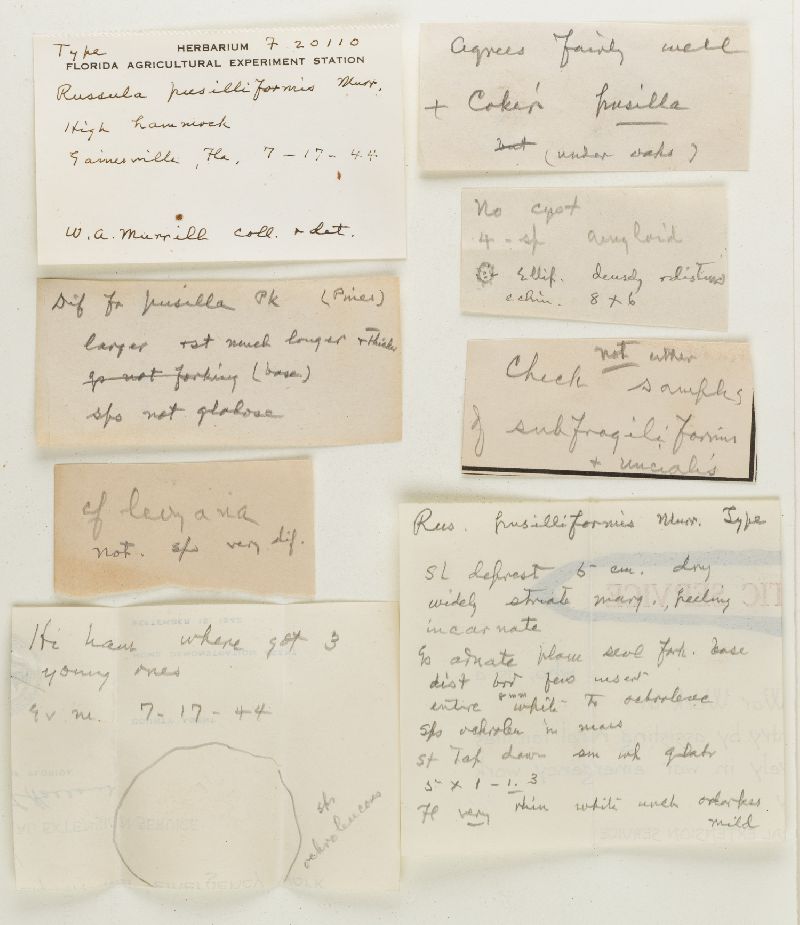 Type HERBARIUM F 20110
FLORIDA AGRICULTURAL EXPERIMENT STATION
Russula pusilliformis Murr.
High hammock
Gainesville, Fla, 7-17-44
W.A. Murrill coll. & det.
Agrees fairly well
+ Coker's pusilla
but (under oaks)
No cyst
4-sp amyloid
Ellip. densely & distinc
echin. 8 x 6
Dif fr pusilla Pk (Pines)
larger & st much longer & thicker
gs not forking (base)
sps not globose
not other
Check samples
of subfragiliformis
+ uncialis
cf levyana
not. sps very dif.
Rus. pusilliformis Murr. Type
SL deprest 5 cm. dry
widely striate marg., peeling
incarnate
Gs adnate plane sevl fork. base
dist brd few insert
entire 8mm white to ochroleuc
sps ochroleu in mass
St tap down sm wh glabr
5 x 1 - 1.3
Fl very thin white unch odorless
mild
Hi ham where got 3
young ones
Gv ne. 7-17-44
sps
ochroleucous